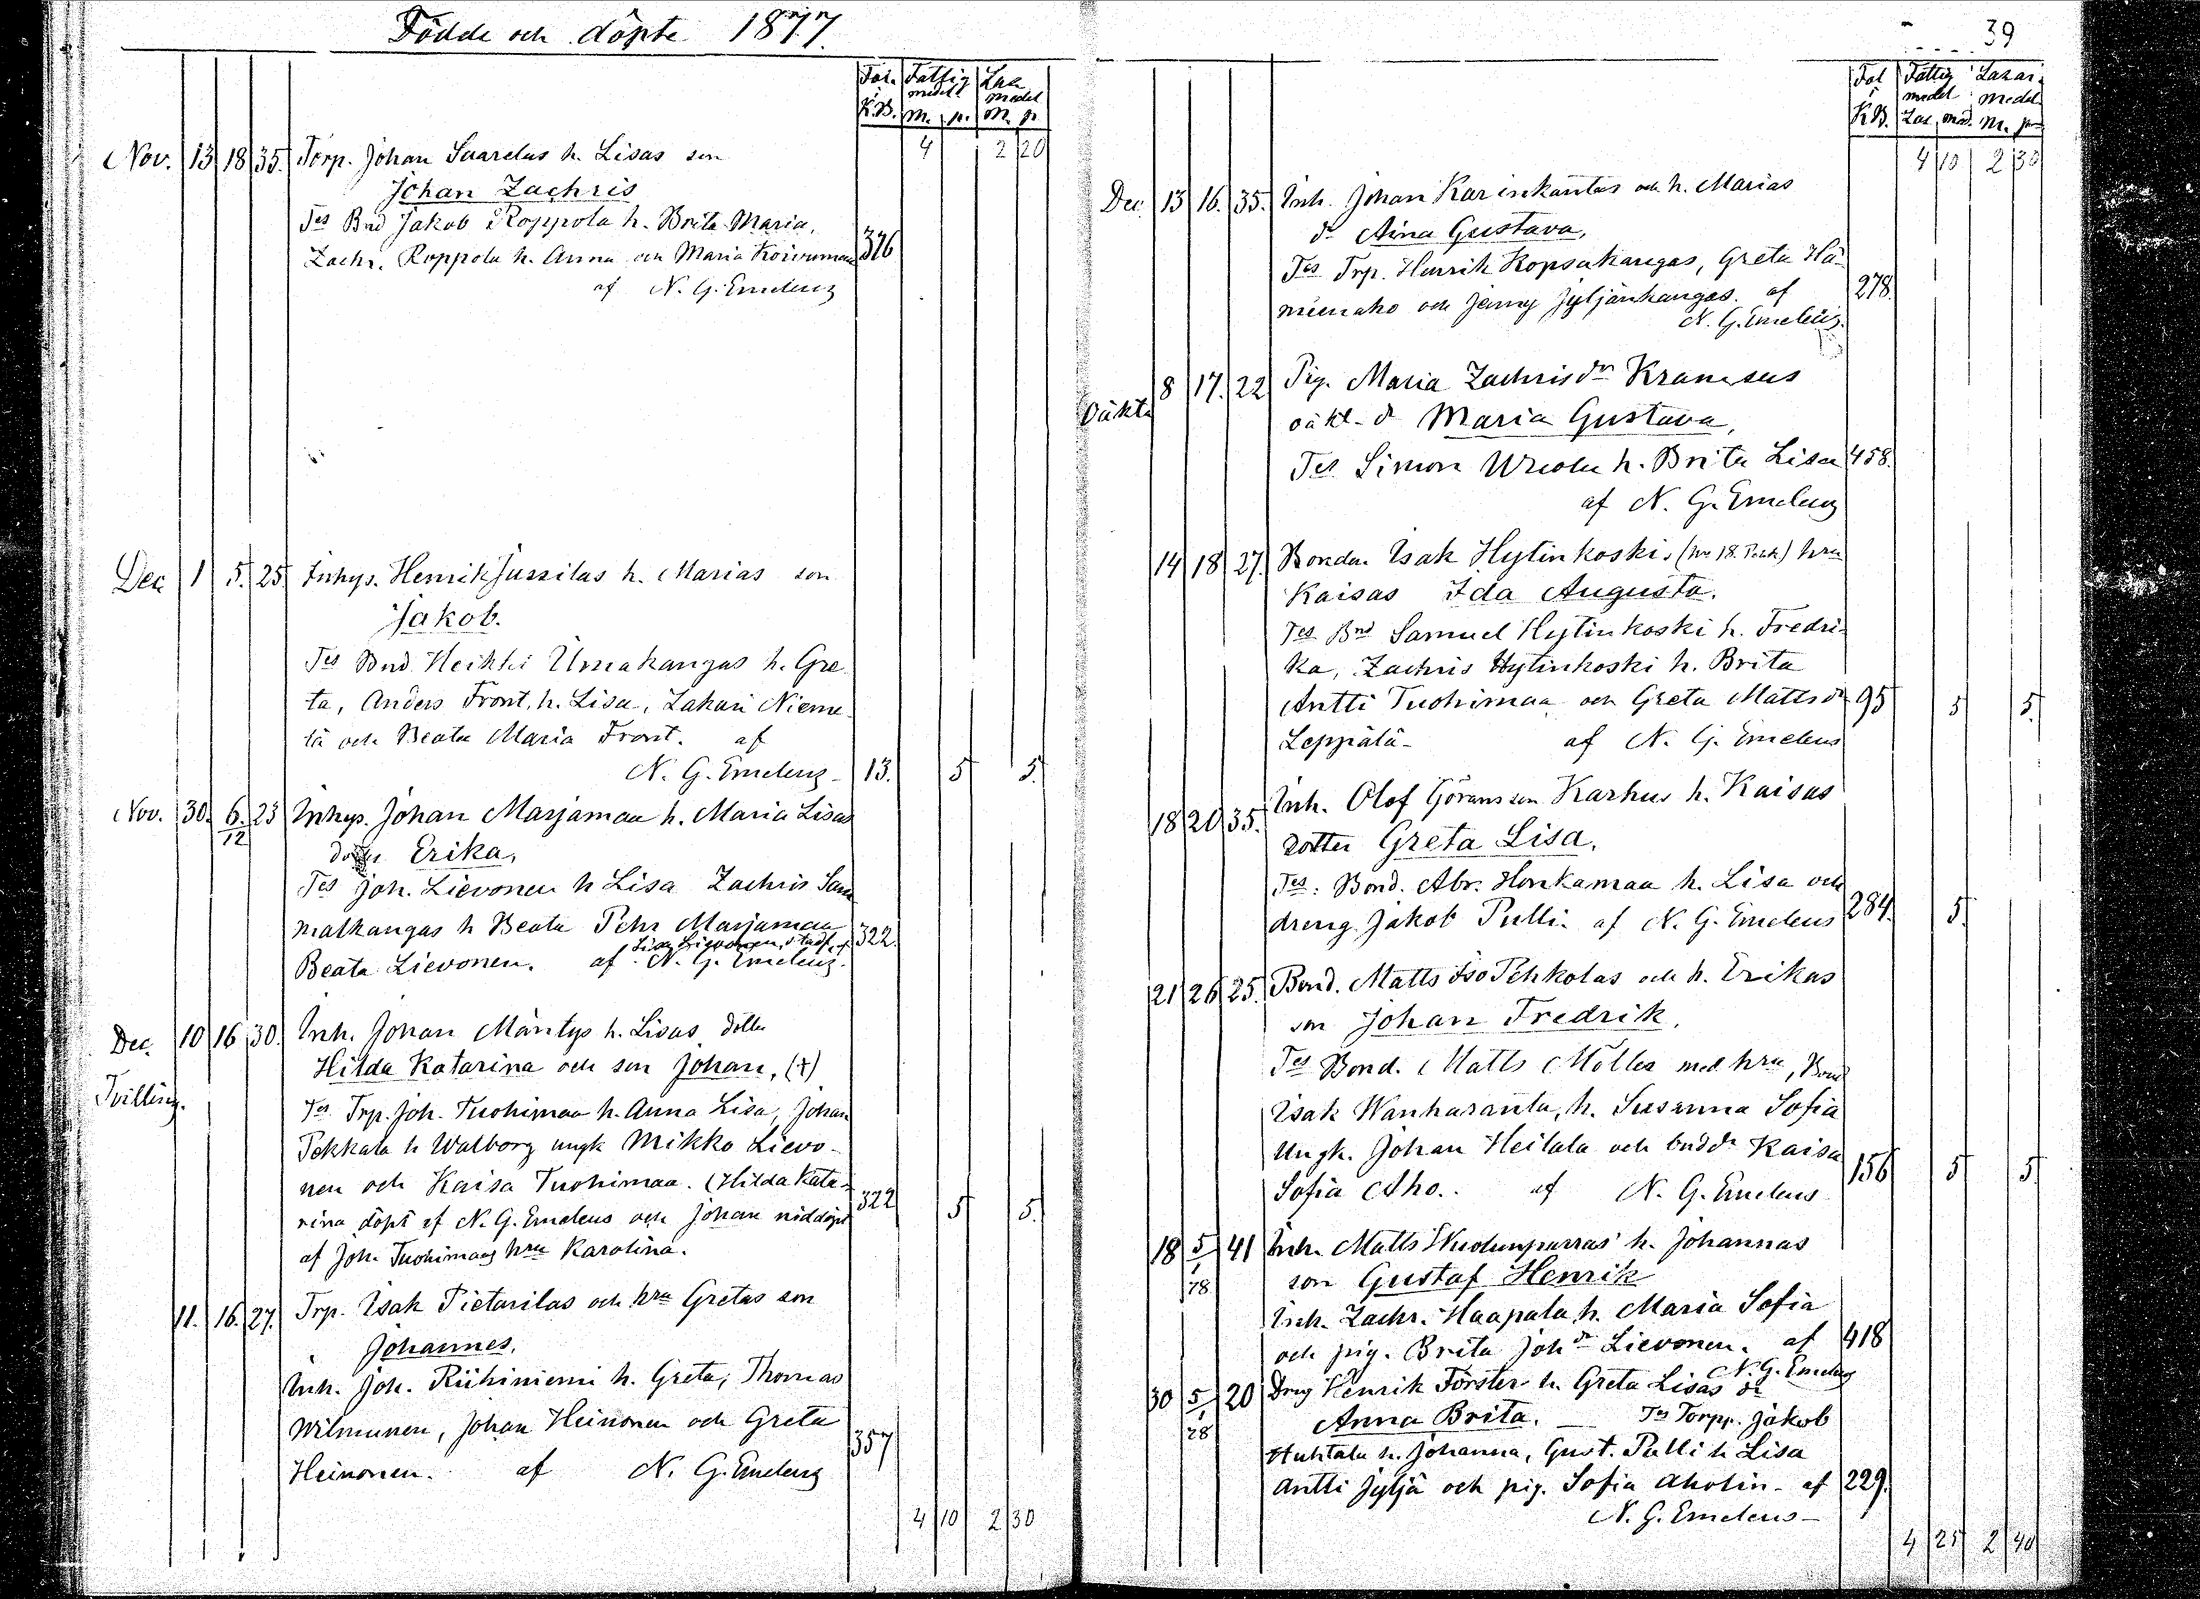 Födde och döpte 1877.
Fol. i K.B. Fattig medel M. p. Laz. medel M. p.
4 2 20
Nov. 13 18 35. Torp. Johan Saarelas h. Lisas son
Johan Zachris
Tes Bnd Jakob Roppola h. Brita Maria,
Zachr. Roppola h. Anna och Maria Koivumaa 376
af N. G. Emeleus
Dec 1 5. 25 Inhys. Henrik Jussilas h. Marias son
Jakob.
Tes Bnd Heikki Uusakangas h. Gre
ta, Anders Front, h. Lisa, Zakari Nieme
lä och Beata Maria Front. af
N. G. Emeleus 13. 5 5.
Nov. 30. 6./12 23 Inhys. Johan Marjamaa h. Maria Lisas
dotter Erika.
Tes Joh. Lievonen h Lisa Zachris Sam
malkangas h Beata Pehr Marjamaa 322.
Lisa Lievonen,
Beata Lievonen. af N. G. Emeleus.
Dec. 10 16 30. Inh. Johan Mäntys h. Lisas dotter
Hilda Katarina och son Johan, (†)
Tvilling. Tes Trp. Joh. Tuohimaa h. Anna Lisa, Johan
Pekkala h Walborg ungk Mikko Lievo-
nen och Kaisa Tuohimaa. (Hilda Kata-
rina döpt af N. G. Emeleus och Johan nöddöpt 322 5 5.
af Joh. Tuohimaas hru Karolina.
11. 16. 27. Trp. Isak Pietarilas och hru Gretas son
Johannes.
Inh. Joh. Riihiniemi h. Greta, Thomas
Wilmunen, Johan Heinonen och Greta 357
Heinonen. af N. G. Emeleus
4 10 2 30
39
Fol i K.B. Fattig medel Lazar. medel M. p.
4 10 2 30
Dec. 13 16. 35. Inh. Johan Karinkantas och h. Marias
dr Aina Gustava,
Tes Trp. Henrik Kopsakangas, Greta Hä-
meenaho och Jenny Jyljänkangas. af 278.
N. G. Emeleus.
Oäkta 8 17. 22 Pig. Maria Zachrisdr Krameus
oäkt. dr Maria Gustava,
Tes Simon Wuolu h. Brita Lisa 458.
af N. G. Emeleus
14 18 27. Bonden Isak Hytinkoski, hru
Kaisas Ida Augusta.
Tes Bnd Samuel Hytinkoski h. Fredri-
ka, Zachris Hytinkoski h. Brita
Antti Tuohimaa och Greta Mattsdr 95 5 5.
Leppälä- af N. G. Emeleus
18 20 35. Inh. Olof Göransson Karhus h. Kaisas
dotter Greta Lisa.
Tes: Bond. Abr. Honkamaa h. Lisa och
dreng Jakob Pulli. af N. G. Emeleus 284. 5.
21 26 25. Bond. Matts Iso Pehkolas och h. Erikas
son Johan Fredrik.
Tes Bond. Matts Möller med hru, Bond
Isak Wanharanta, h. Susanna Sofia
Ungk. Johan Heilala och bnddr Kaisa 156 5 5.
Sofia Aho. af N. G. Emeleus
18 5/1 78 41 Inh. Matts Wuolunparras' h. Johannas
son Gustaf Henrik
Inh. Zachr. Haapala h. Maria Sofia
och pig. Brita Johdr Lievonen. af 418
N. G. Emeleus
30 5/1 78 20 Dreng Henrik Förster h. Greta Lisas dr
Anna Brita. — Tes Torpp. Jakob
Huhtala h. Johanna, Gust. Pulli h Lisa
Antti Jyljä och pig. Sofia Aholin- af 229.
N. G. Emeleus-
4 25 2 40